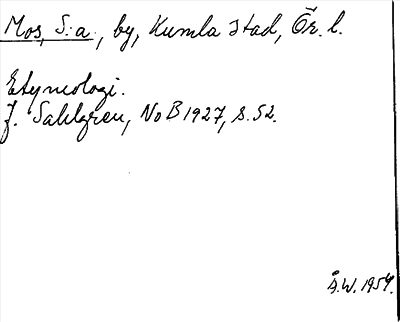 Mos, S:a, by, Kumla stad, Ör. l.
Etymologi.
J. Sahlgren, NoB 1927, s. 52.
Å.W. 1954.